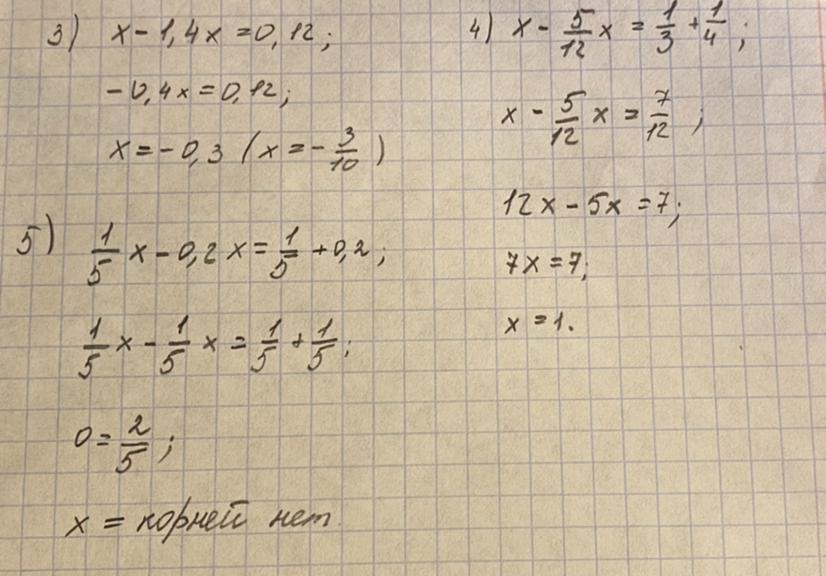 3) x - 1,4x = 0,12;
-0,4x = 0,12;
x = -0,3 (x = -3/10)
4) x - 5/12 x = 1/3 + 1/4;
x - 5/12 x = 7/12;
12x - 5x = 7;
7x = 7;
x = 1.
5) 1/5 x - 0,2x = 1/5 + 0,2;
1/5 x - 1/5 x = 1/5 + 1/5;
0 = 2/5;
x = корней нет.